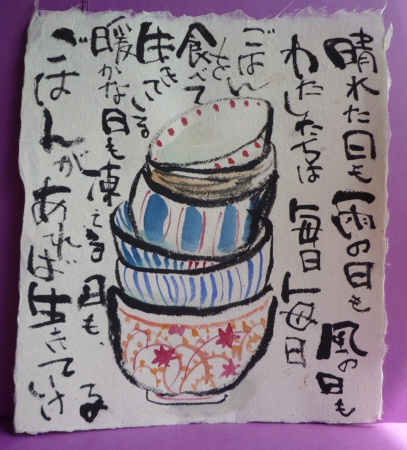 晴れた日も雨の日も風の日も
わたしたちは毎日毎日
ごはんを
食べて
生きている
暖かな日も凍える日も、
ごはんがあれば生きていける